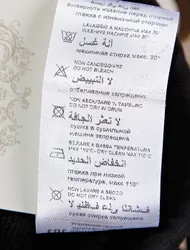 вывернуть наизнанку перед стиркой
глажка с изнаночной стороны
LAVAGGIO A MACCHINA MAX 30°
MACHINE WASH MAX 30°
آلة غسل
машинная стирка макс. 30°
NON CANDEGGIARE
DO NOT BLEACH
لا التبييض
отбеливание запрещено
NON ASCIUGARE IN TAMBURO
DO NOT DRUM DRY
لا تعثر الجافة
сушка в сушильной
машине запрещена
STIRARE A BASSA TEMPERATURA
انخفاض الحديد
глажка при низкой
температуре, макс 110°
NON LAVARE A SECCO
DO NOT DRY CLEAN
сухая чистка запрещена